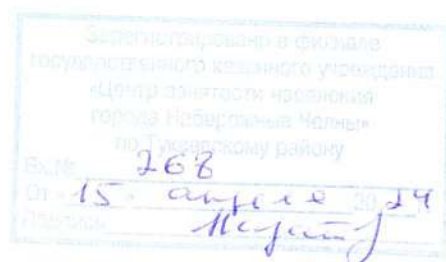 Зарегистрировано в филиале
государственного казенного учреждения
«Центр занятости населения
города Набережные Челны»
по Тукаевскому району
Вх.№ 268
От «15» апреля 20 24
Подпись